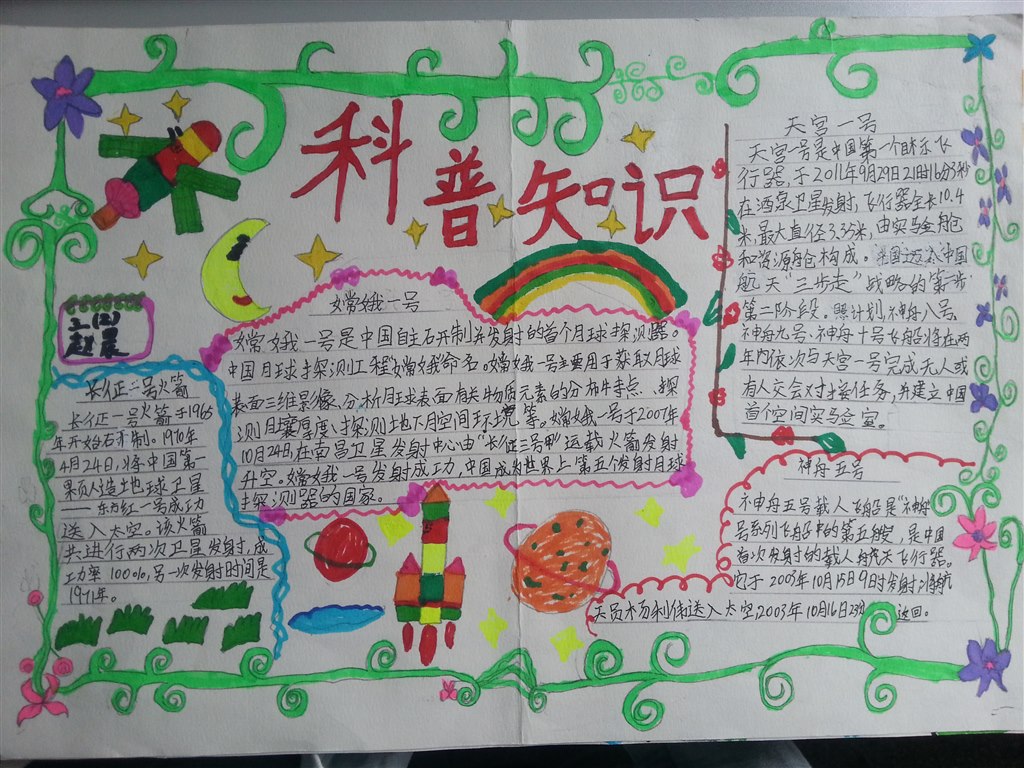 科普知识
二(2)
赵晨
长征一号火箭
长征一号火箭于1965
年开始研制。1970年
4月24日,将中国第一
颗人造地球卫星
——东方红一号成功
送入太空。该火箭
共进行两次卫星发射,成
功率100%,另一次发射时间是
1971年。
嫦娥一号
嫦娥一号是中国自主研制并发射的首个月球探测器。
中国月球探测工程嫦娥命名。嫦娥一号主要用于获取月球
表面三维影像、分析月球表面有关物质元素的分布特点、探
测月壤厚度、探测地下月空间环境等。嫦娥一号于2007年
10月24日,在南昌卫星发射中心由“长征三号甲”运载火箭发射
升空。嫦娥一号发射成功,中国成为世界上第五个发射月球
探测器的国家。
天宫一号
天宫一号是中国第一个目标飞
行器,于2011年9月29日21时16分3秒
在酒泉卫星发射,飞行器全长10.4
米,最大直径3.35米,由实验舱
和资源舱构成。中国
航天“三步走”战略的第二步
第二阶段。照计划,神舟八号、
神舟九号、神舟十号飞船将在两
年内依次与天宫一号完成无人或
有人交会对接任务,并建立中国
首个空间实验室。
神舟五号
神舟五号载人飞船是“神舟”
号系列飞船中的第五艘,是中国
首次发射的载人航天飞行器。
它于2003年10月15日9时发射,将航
天员杨利伟送入太空,2003年10月16日23分返回。